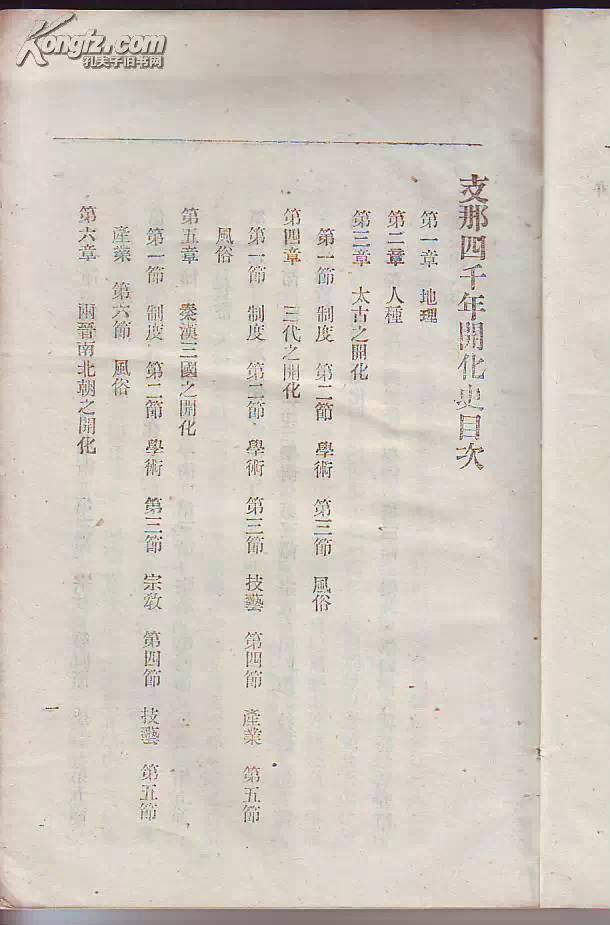 Kongfz.com
孔夫子旧书网
支那四千年開化史目次
第一章 地理
第二章 人種
第三章 太古之開化
第一節 制度 第二節 學術 第三節 風俗
第四章 三代之開化
第一節 制度 第二節 學術 第三節 技藝 第四節 產業 第五節
風俗
第五章 秦漢三國之開化
第一節 制度 第二節 學術 第三節 宗教 第四節 技藝 第五節
產業 第六節 風俗
第六章 兩晉南北朝之開化
一